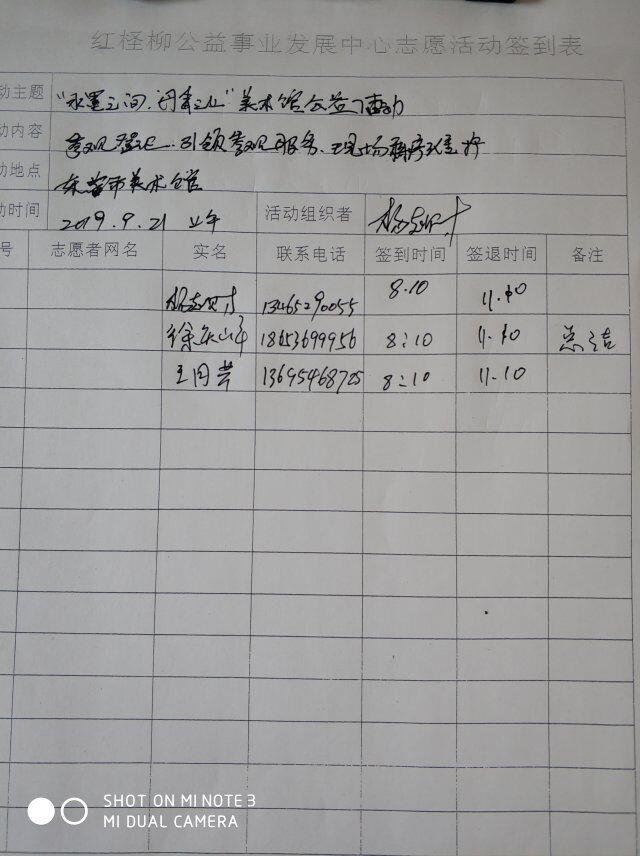 红柽柳公益事业发展中心志愿活动签到表
动主题 美术馆公益活动
动内容 参观登记、引领参观服务、现场秩序维持
动地点 东营市美术馆
动时间 2019.9.21 上午 活动组织者
号 志愿者网名 实名 联系电话 签到时间 签退时间 备注
13465290055 8.10 11.40
18653699956 8:10 11.40 总结
13695468725 8:10 11.10
SHOT ON MI NOTE 3
MI DUAL CAMERA